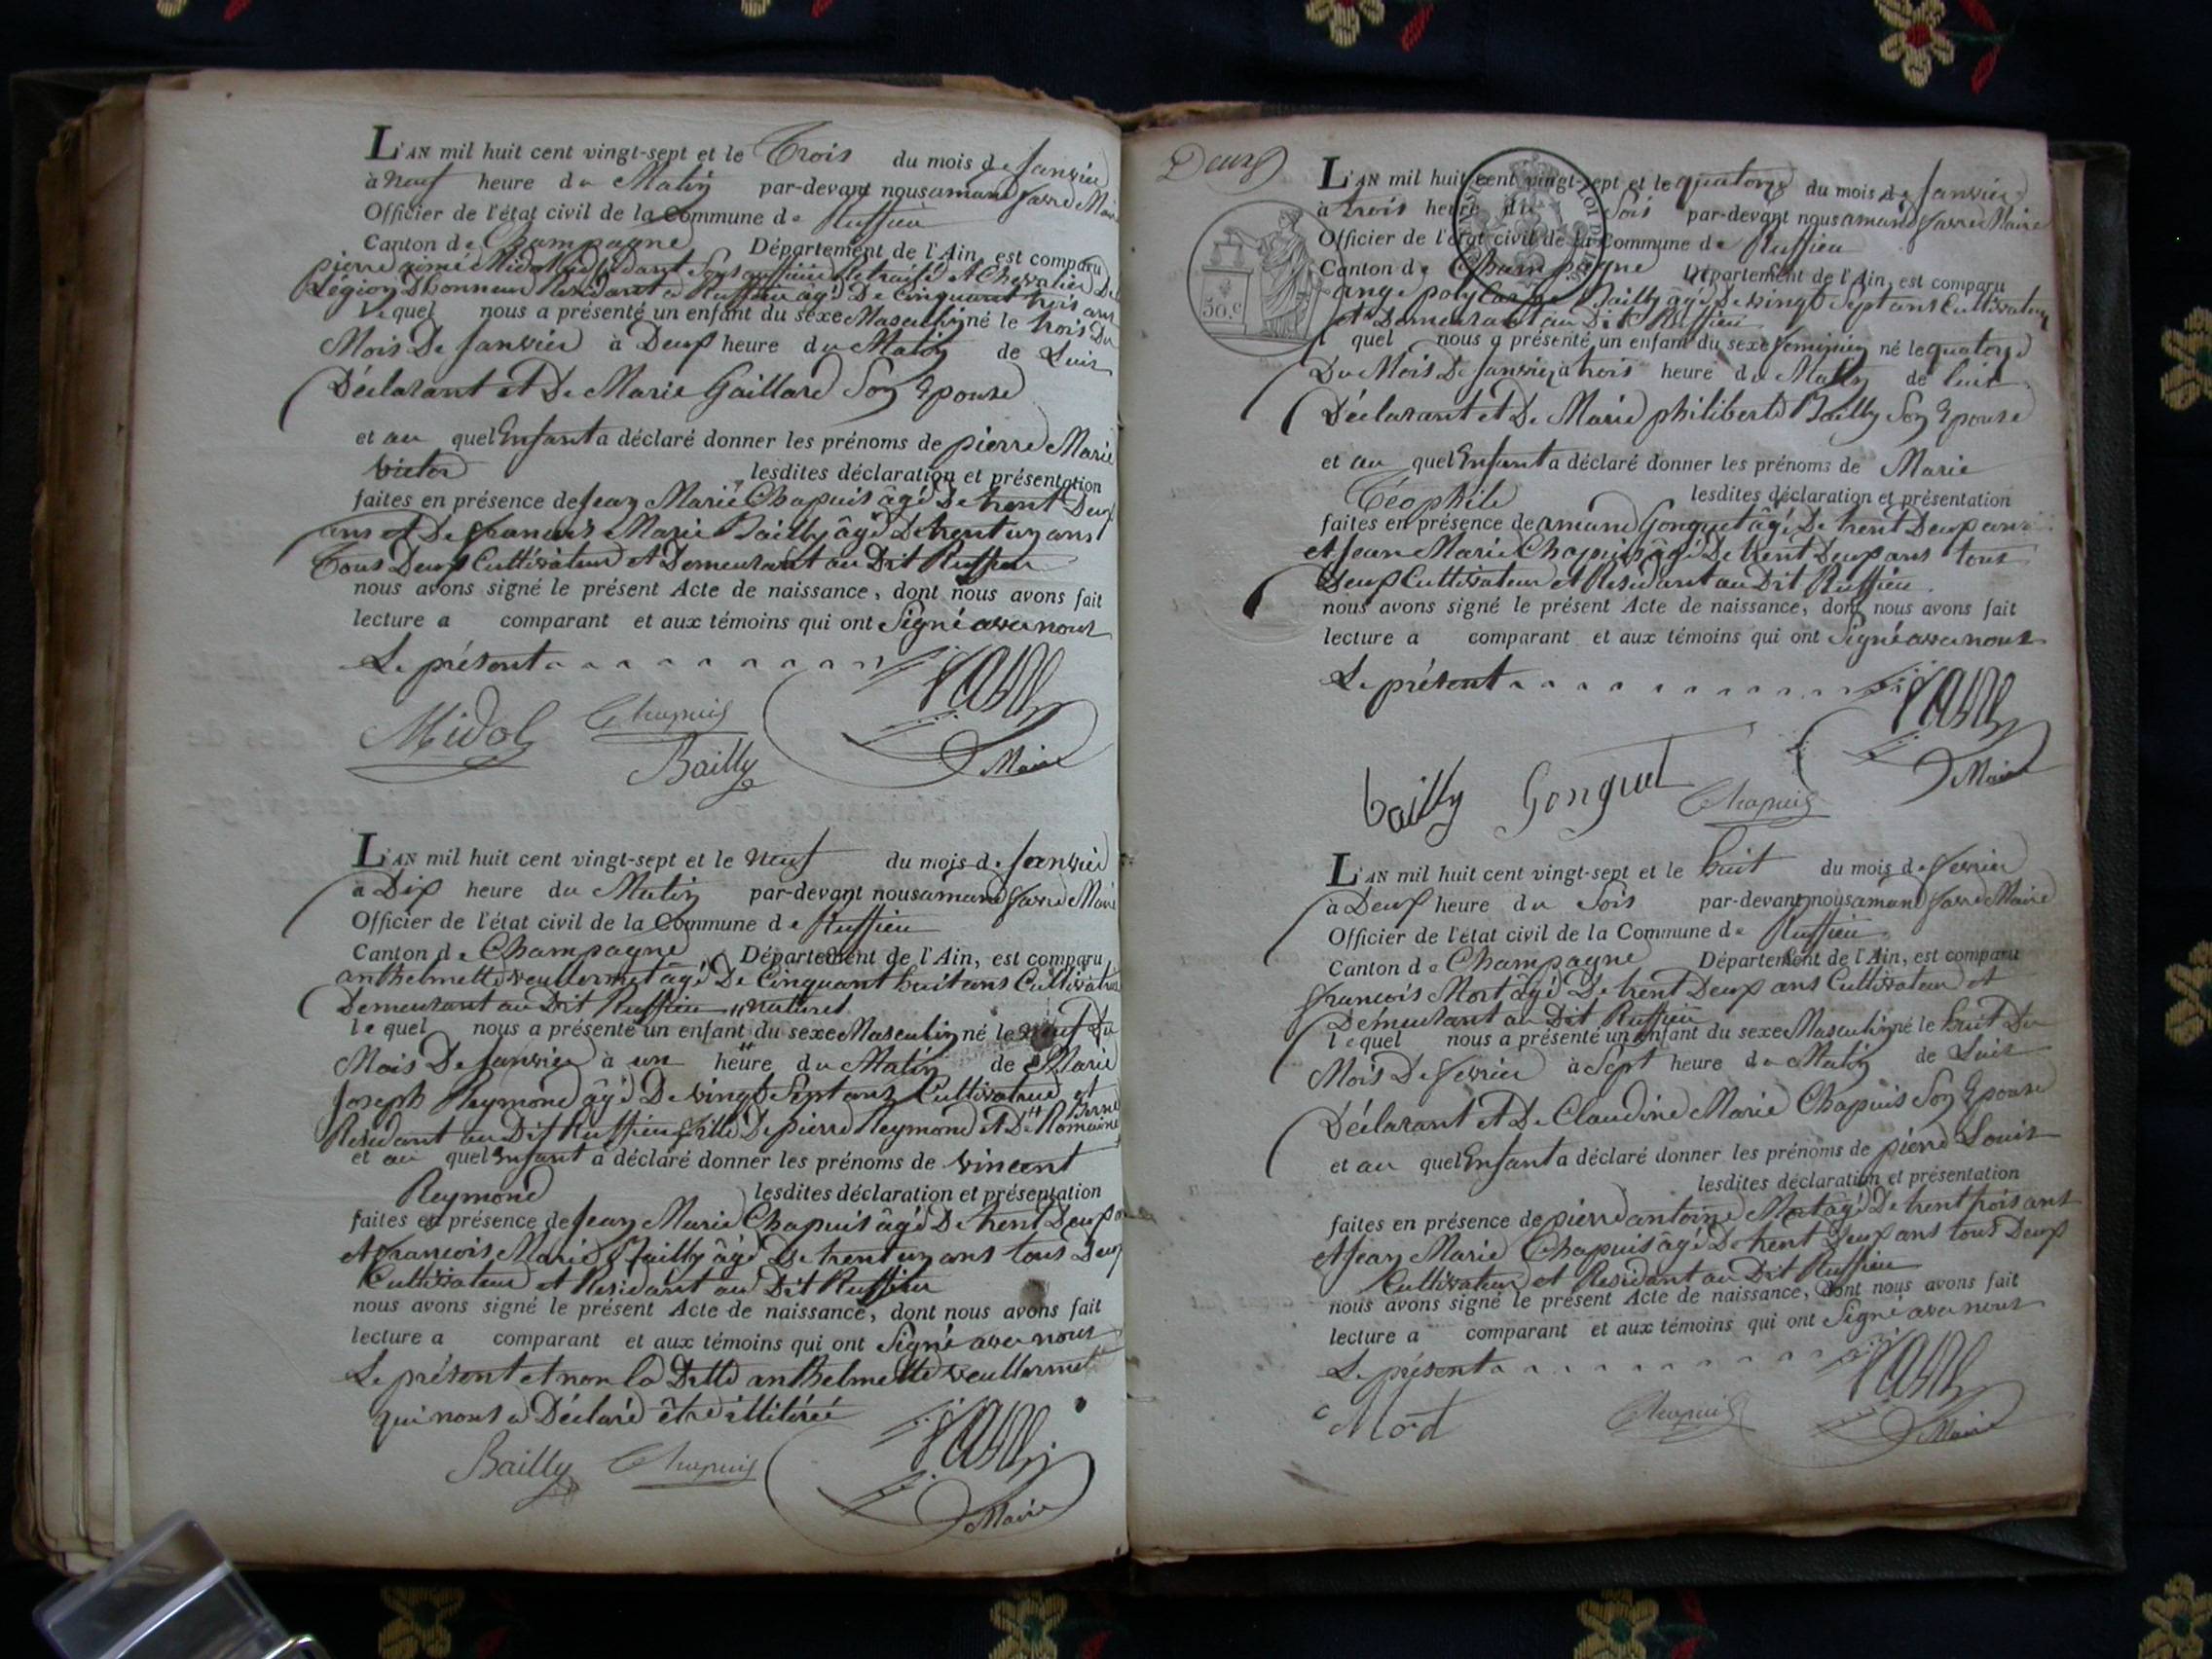 L'AN mil huit cent vingt-sept et le Trois du mois de Janvier
à neuf heure du Matin par-devant nous amand favre Maire
Officier de l'état civil de la Commune de Ruffieu
Canton de Champagne Département de l'Ain, est comparu
pierre aimé Midol adjudant Sous officier Retraité et Chevalier De
Legion Dhonneur Residant a Ruffieu âgé De Cinquant trois ans
Lequel nous a présenté un enfant du sexe Masculin né le trois Du
Mois De Janvier à Deux heure du Matin de Luis
Déclarant et De Marie Gaillard Son Epouse
et au quel Enfant a déclaré donner les prénoms de pierre Marie
victor lesdites déclaration et présentation
faites en présence de Jean Marie Chapuis âgé De trent Deux
ans et De francois Marie Bailly âgé De trent un ans
Tous Deux Cultivateur et Demeurant au Dit Ruffieu
nous avons signé le présent Acte de naissance, dont nous avons fait
lecture a comparant et aux témoins qui ont Signé avec nous
Le présent
Midol Chapuis
Bailly
Maire
L'AN mil huit cent vingt-sept et le neuf du mois de Janvier
à Dix heure du Matin par-devant nous amand favre Maire
Officier de l'état civil de la Commune de Ruffieu
Canton de Champagne Département de l'Ain, est comparu
anthelmette veullermet âgé De Cinquant huit ans Cultivatrice
Demeurant au Dit Ruffieu naturel
lequel nous a présenté un enfant du sexe Masculin né le neuf Du
Mois De Janvier à un heure du Matin de Marie
Joseph Reymond âgé De vingt Sept ans Cultivatrice et
Residant au Dit Ruffieu fille De pierre Reymond et De Romaine
et au quel Enfant a déclaré donner les prénoms de vincent
Reymond lesdites déclaration et présentation
faites en présence de Jean Marie Chapuis âgé De trent Deux
et francois Marie Bailly âgé De trent un ans tous Deux
Cultivateur et Residant au Dit Ruffieu
nous avons signé le présent Acte de naissance, dont nous avons fait
lecture a comparant et aux témoins qui ont Signé avec nous
Le présent et non la Ditte anthelmette veullermet
qui nous a Déclaré être illitéré
Bailly Chapuis
Maire
Deux
L'AN mil huit cent vingt-sept et le quatorze du mois de Janvier
à trois heure du Soir par-devant nous amand favre Maire
Officier de l'état civil de la Commune de Ruffieu
Canton de Champagne Département de l'Ain, est comparu
ange polycarpe Bailly âgé De vingt Sept ans Cultivateur
et Demeurant au Dit Ruffieu
50.c
quel nous a présenté un enfant du sexe feminin né le quatorze
Du Mois De Janvier à trois heure du Matin de luis
Déclarant et De Marie philiberte Bailly Son Epouse
et au quel Enfant a déclaré donner les prénoms de Marie
Téophile lesdites déclaration et présentation
faites en présence de amand Gonguet âgé De trent Deux ans
et Jean Marie Chapuis âgé De trent Deux ans tous
Deux Cultivateur et Residant au Dit Ruffieu
nous avons signé le présent Acte de naissance, dont nous avons fait
lecture a comparant et aux témoins qui ont Signé avec nous
Le présent
bailly Gonguet Chapuis
Maire
L'AN mil huit cent vingt-sept et le huit du mois de fevrier
à Deux heure du Soir par-devant nous amand favre Maire
Officier de l'état civil de la Commune de Ruffieu
Canton de Champagne Département de l'Ain, est comparu
francois Mort âgé De trent Deux ans Cultivateur et
Demeurant au Dit Ruffieu
lequel nous a présenté un enfant du sexe Masculin né le huit Du
Mois De fevrier à Sept heure du Matin de Luis
Déclarant et De Claudine Marie Chapuis Son Epouse
et au quel Enfant a déclaré donner les prénoms de pierre Louis
lesdites déclaration et présentation
faites en présence de pierre antoine Mort âgé De trent trois ans
et Jean Marie Chapuis âgé De trent Deux ans tous Deux
Cultivateur et Residant au Dit Ruffieu
nous avons signé le présent Acte de naissance, dont nous avons fait
lecture a comparant et aux témoins qui ont Signé avec nous
Le présent
Mort Chapuis
Maire